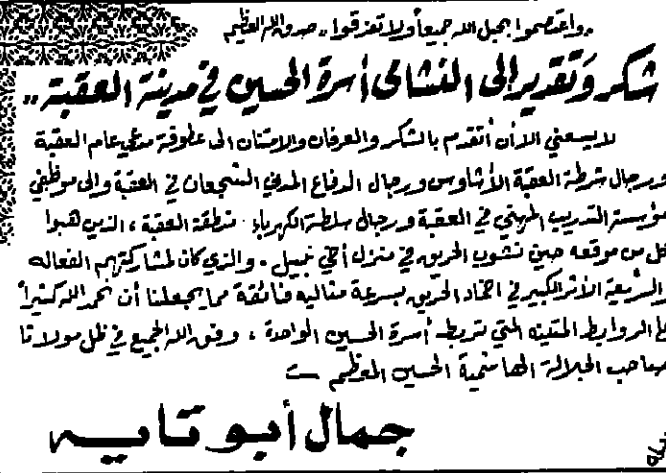 „واعتصموا بحبل الله جميعاً ولا تفرقوا" صدق الله العظيم
شكر وتقدير إلى النشامى أسرة الحسين في مدينة العقبة „
لا يسعني الا أن أتقدم بالشكر والعرفان والامتنان الى عطوفة مدعي عام العقبة
ورجال شرطة العقبة الأشاوس ورجال الدفاع المدني الشجعان في العقبة والى موظفي
مؤسسة التدريب المهني في العقبة ورجال سلطة الكهرباء منطقة العقبة ، الذين هبوا
كل من موقعه حين نشوب الحريق في منزل أخي نبيل . والذي كان لمشاركتهم الفعاله
والسريعة الأثر الكبير في اخماد الحريق بسرعة مثاليه فائقة مما يجعلنا أن نحمد الله كثيراً
على الروابط المتينه التي تربط أسرة الحسين الواحدة ، وفق الله الجميع في ظل مولانا
صاحب الجلالة الهاشمية الحسين المعظم
جمال أبو تايه